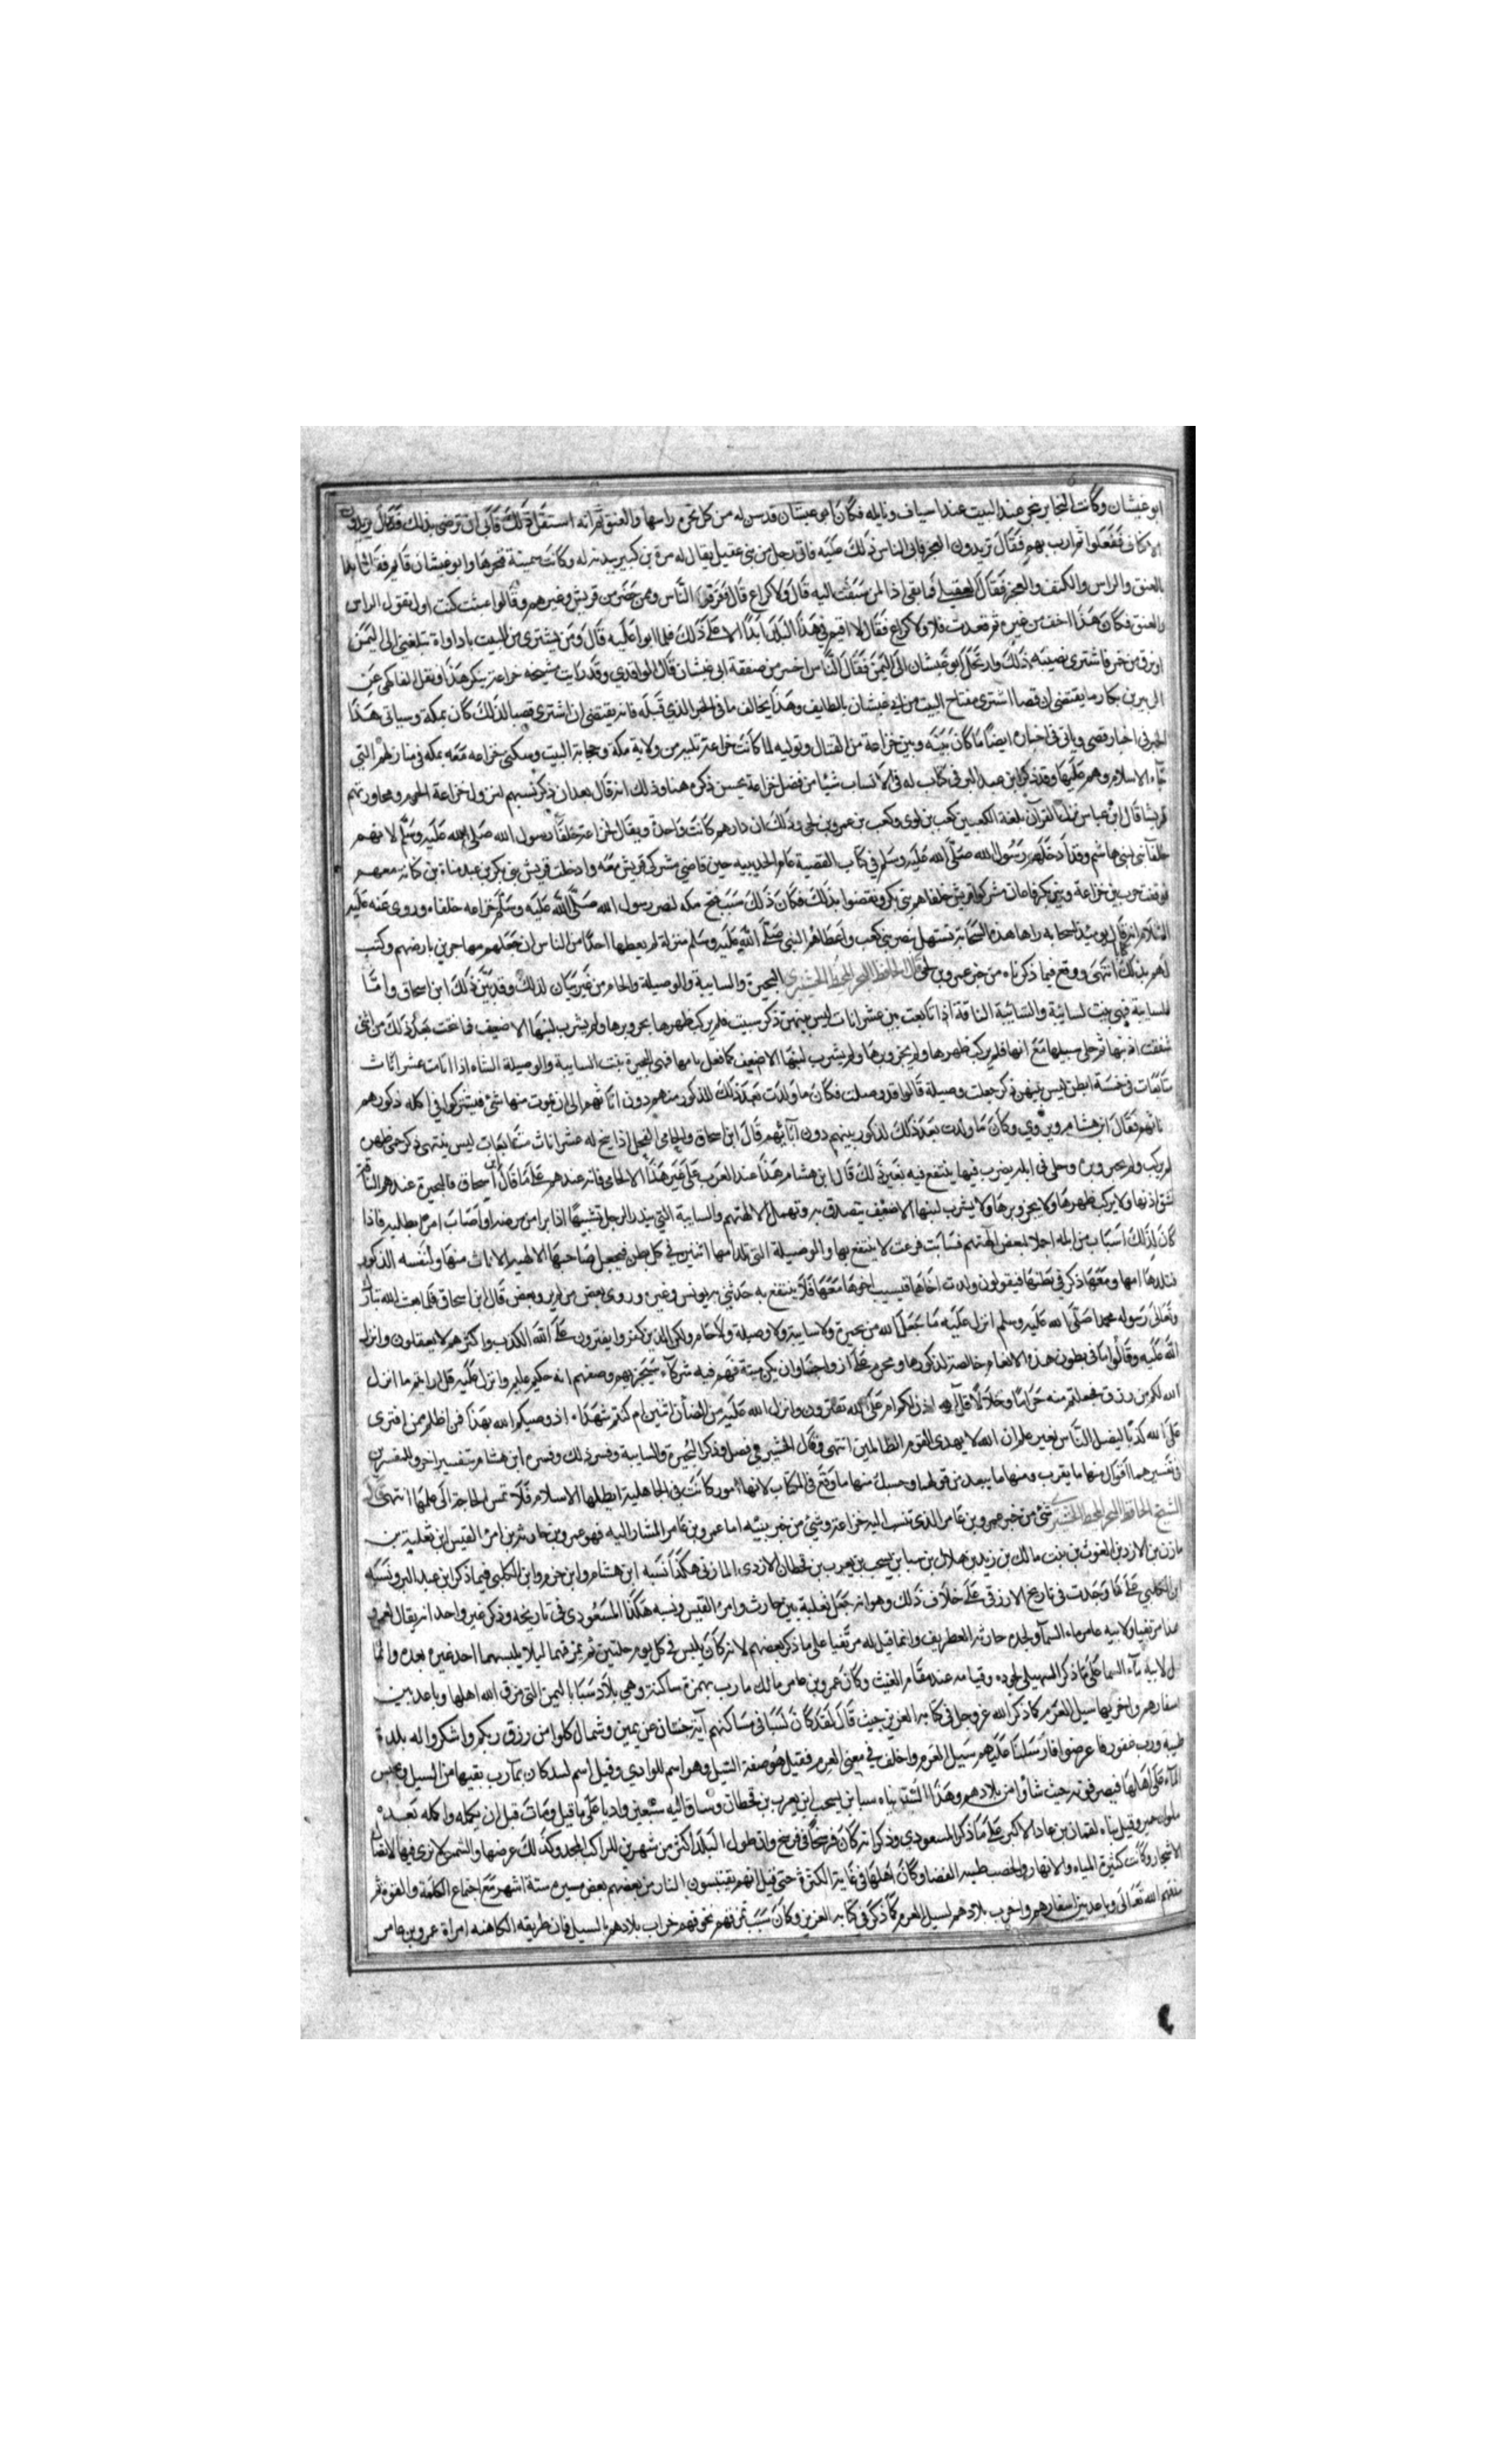 ابو غبشان وكانت النحاير تنحر عند البيت عند اساف ونايله فكان ابو غبشان قد سن له من كل نحيرة راسها والعنق ثم انه استقل ذلك فابى ان ترضى بذلك فقال يزيدون
الاكتاف ففعلوا ثم ارب بهم فقال تزيدون العجز فابى الناس ذلك عليه فاتى رجل من بني عقيل يقال له مرة بن كبير ببدنة له وكانت سمينة فنحرها وابو غبشان قايم فقال
العنق والراس والكتف والعجز فقال العقيلي فما بقي اذا لمن سقت اليه قال ولاكراع قال فعرف الناس ومن حضر من قريش وغيرهم وقالوا عبثت كنت اولا تقول الراس
والعنق فكان هذا اخف من غيره ثم تعديت فلا ولاكراع فقال لا اقيم في هذا البلد ابدا الا على ذلك فلما ابوا عليه قال ومن يشتري مني البيت باداواة تبلغني الى اليمن
او زق من خمر فاشترى نصيبه ذلك وارتحل ابو غبشان الى اليمن فقال الناس اخسر من صفقة ابي غبشان قال الواقدي وقد رايت مشيخه خزاعة ينكر هذا ونقل الفاكهي عن
الزبير بن بكار ما يقتضي ان قصيا اشترى مفتاح البيت من ابي غبشان بالطايف وهذا يخالف ما في الخبر الذي قبله فانه يقتضي ان اشترى قصيا لذلك كان بمكة وسياتي هذا
الخبر في اخبار قصي وياتي في اخباره ايضا ما كان بينه وبين خزاعة من القتال وتوليه لما كانت خزاعة تليه من ولاية مكة وحجابة البيت وسكنى خزاعه معه بمكه في منازلهم التي
جاء الاسلام وهم عليها وقد ذكر ابن عبد البر في كتاب له في الانساب شيئا من فضل خزاعة يحسن ذكره هنا وذلك انه قال بعد ان ذكر نسبهم لنزول خزاعة الحرم ومجاورتهم
قريشا قال ابن عباس نزل القرآن بلغة الكعبين كعب بن لوي وكعب بن عمرو بن لحي وذلك ان دارهم كانت واحدة ويقال لخزاعة حلفا رسول الله صلى الله عليه وسلم لانهم
حلفا بني هاشم وقد ادخلهم رسول الله صلى الله عليه وسلم في كتاب القضية عام الحديبيه حين قاضى مشركي قريش معه وادخلت قريش بني بكر بن عبد مناة بن كنانة معهم
فوقعت حرب بين خزاعة وبني بكر فاعان مشركوا قريش حلفاهم بني بكر ونقضوا بذلك فكان ذلك سبب فتح مكه لنصر رسول الله صلى الله عليه وسلم خزاعه حلفاءه وروى عنه عليه
السلام انه قال يوميذ لسحابه راها هذه السحابة تستهل بنصر بني كعب واعطاهم النبي صلى الله عليه وسلم منزلة لم يعطها احدا من الناس ان جعلهم مهاجرين بارضهم وكتب
لهم بذلك انتهى ووقع فيما ذكرناه من خبر عمرو بن لحي قال الحافظ البحيرة والسايبة والوصيلة والحام من غير بيان لذلك وقد بين ذلك ابن اسحاق واما
السايبة فهي بنت لسائبة والسائبة الناقة اذا تابعت بين عشر اناث ليس بينهن ذكر سيبت فلم يركب ظهرها ولم يجز وبرها ولم يشرب لبنها الا ضيف فما نتجت بعد ذلك من انثى
شقت اذنها ثم خلي سبيلها مع امها فلم يركب ظهرها ولم يجز وبرها ولم يشرب لبنها الا ضيف كما فعل بامها فهي البحيرة بنت السايبة والوصيلة الشاه اذا اتامت عشر اناث
متتابعات في خمسة ابطن ليس بينهن ذكر جعلت وصيلة قالوا قد وصلت فكان ما ولدت بعد ذلك للذكور منهم دون اناثهم الا ان يموت منها شئ فيشتركوا في اكله ذكورهم
واناثهم فقال ابن هشام وروي وكان ما ولدت بعد ذلك لذكور بنيهم دون اناثهم قال ابن اسحاق والحامي الفحل اذا نتج له عشر اناث متتابعات ليس بينهن ذكر حمي ظهره
لم يركب ولم يجز وبره وخلي في ابله يضرب فيها لا ينتفع فيه بغير ذلك قال ابن هشام هذا عند العرب على غير هذا الا الحامي فانه عندهم على ما قال ابن اسحاق فالبحيرة عندهم الناقة
تشق اذنها ولا يركب ظهرها ولا يجز وبرها ولا يشرب لبنها الا ضيف او يتصدق به وتهمل لالهتهم والسايبة التي ينذر الرجل تسييبها اذا برا من مرضه او اصاب امرا يطلبه فاذا
كان لذلك اساب من ابله اجلا لبعض آلهتهم فسابت فرعت لا ينتفع بها والوصيلة التي تلد امها اثنين في كل بطن فيجعل صاحبها لالهته الاناث منها ولنفسه الذكور
فتلدها امها ومعها ذكر في بطنها فيقولون ولدت اخاها فيسيب اخوها معها فلا ينتفع به حدثني به يونس وغيره وروى بعض ما لم يرو بعض قال ابن اسحاق فلما بعث الله تبارك
وتعالى رسوله محمدا صلى الله عليه وسلم انزل عليه ما جعل الله من بحيرة ولا سايبة ولا وصيلة ولا حام ولكن الذين كفروا يفترون على الله الكذب واكثرهم لا يعقلون وانزل
الله عليه وقالوا ما في بطون هذه الانعام خالصة لذكورها ومحرم على ازواجنا وان يكن ميتة فهم فيه شركاء سيجزيهم وصفهم انه حكيم عليم وانزل عليه قل ارايتم ما انزل
الله لكم من رزق فجعلتم منه حراما وحلالا قل آلله اذن لكم ام على الله تفترون وانزل الله عليه من الضأن اثنين ام كنتم شهداء اذ وصيكم الله بهذا فمن اظلم ممن افترى
على الله كذبا ليضل الناس بغير علم ان الله لا يهدي القوم الظالمين انتهى وقال في فصل وذكر البحيرة والسايبة وفسر ذلك وفسره ابن هشام بتفسير اخر وللمفسرين
في تفسيرهما اقوال منها ما يقرب ومنها ما يبعد من قولهما وحسبك منها ما وقع في الكتاب لانها امور كانت في الجاهلية ابطلها الاسلام فلا تمس الحاجة الى علمها انتهى
الشيخ الحافظ شئ من خبر عمرو بن عامر الذي تنسب اليه خزاعة وشئ من خبر بنيه اما عمرو بن عامر المشار اليه فهو عمرو بن عامر بن حارثة بن امرئ القيس بن ثعلبة بن
مازن بن الازد بن الغوث بن نبت بن مالك بن زيد بن كهلان بن سبا بن يشجب بن يعرب بن قحطان الازدي المازني هكذا نسبه ابن هشام وابن حزم وابن الكلبي فيما ذكر ابن عبد البر ونسبه
ابن الكلبي على ما وجدت في تاريخ الازرقي على خلاف ذلك وهو انه جعل ثعلبة بين حارثة وامرئ القيس ونسبه هكذا المسعودي في تاريخه وذكر غير واحد انه يقال لعمرو
هذا مزيقيا ولابيه عامر ماء السماء ولجده حارثة الغطريف وانما قيل له مزيقيا على ما ذكر بعضهم لانه كان يلبس في كل يوم حلتين ثم يمزقهما ليلا يلبسهما احد غيره بعده وانما
قيل لابيه ماء السماء على ما ذكر السهيلي لجوده وقيامه عندهم مقام الغيث وكان عمرو بن عامر مالك مارب بهمزة ساكنة وهي بلاد سبا باليمن التي مزق الله اهلها وباعد بين
اسفارهم واخربها سيل العرم كما ذكر الله عز وجل في كتابه العزيز حيث قال لقد كان لسبا في مساكنهم آية جنتان عن يمين وشمال كلوا من رزق ربكم واشكروا له بلدة
طيبة ورب غفور فاعرضوا فارسلنا عليهم سيل العرم واختلف في معنى العرم فقيل هو صفة السيل وهو اسم للوادي وقيل اسم لسد كان بمأرب يقيها من السيل ويحبس
الماء على اهلها فيصرفونه حيث شاؤا من بلادهم وهذا السد بناه سبا بن يشجب بن يعرب بن قحطان وساق اليه سبعين واديا على ما قيل ومات قبل ان يكمله واكمله بعده
ملوك حمير وقيل بناه لقمان بن عاد الاكبر على ما ذكر المسعودي وذكر انه كان فرسخا في فرسخ وان طول البلد اكثر من شهرين للراكب المجد وكذلك عرضها والشمس لا ترى فيها لالتفاف
الاشجار وكانت كثيرة المياه والانهار والخصب طيبه الفضا وكان اهلها في غاية الكثرة حتى قيل انهم يقتبسون النار من بعضهم بعض مسيرة ستة اشهر مع اجتماع الكلمة والقوة ثم
مزقهم الله تعالى وباعد بين اسفارهم واخرب بلادهم لسيل العرم كما ذكر في كتابه العزيز وكان سبب تمزقهم تخوفهم خراب بلادهم بالسيل فان طريفه الكاهنه امراة عمرو بن عامر